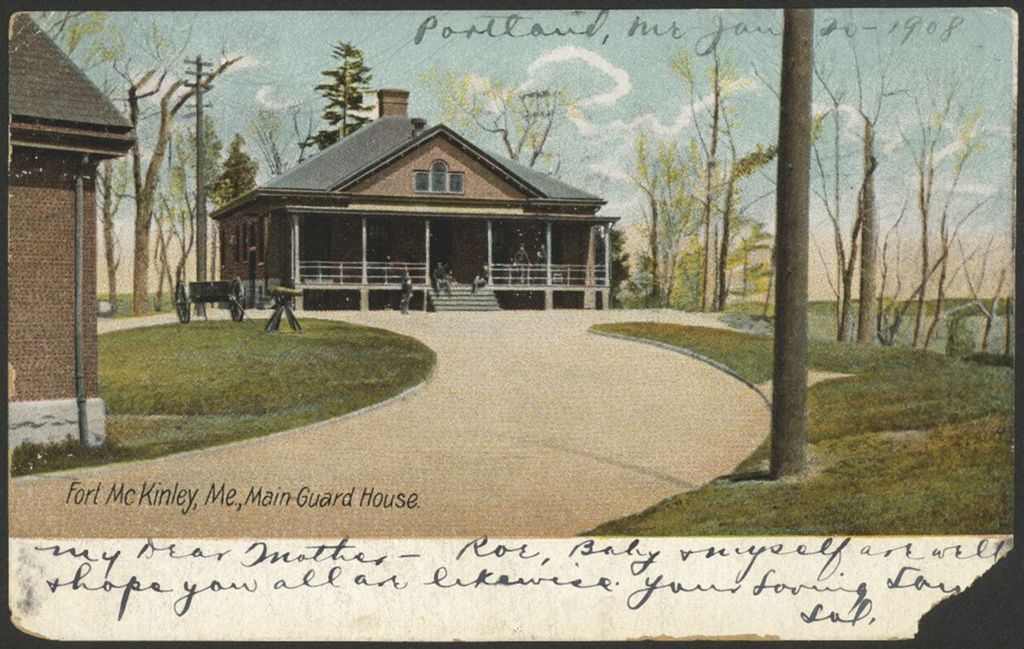 Portland, Me Jan 20-1908
Fort McKinley, Me., Main Guard House.
my Dear Mother - Roe, Baby & myself are well
& hope you all are likewise. your Loving Son
Sol.